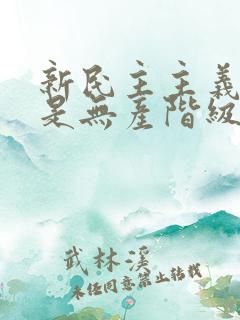 新民主主義
是無產階級
武林溪
未經同意禁止轉載